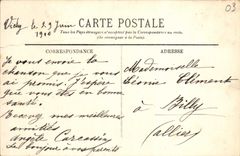 Vichy le 29 Juin
1900
03
CARTE POSTALE
Tous les Pays étrangers n'acceptent pas la Correspondance au recto.
(Se renseigner à la Poste)
CORRESPONDANCE
ADRESSE
Je vous envoie la
chanson que je vous
ai promis j'espère
que vous êtes en bonne
santé.
Recevez mes meilleures
amitiés
Carcassin
Le bonjour à vos parents
Mademoiselle
Léonie Clément
à Billy
(allier)